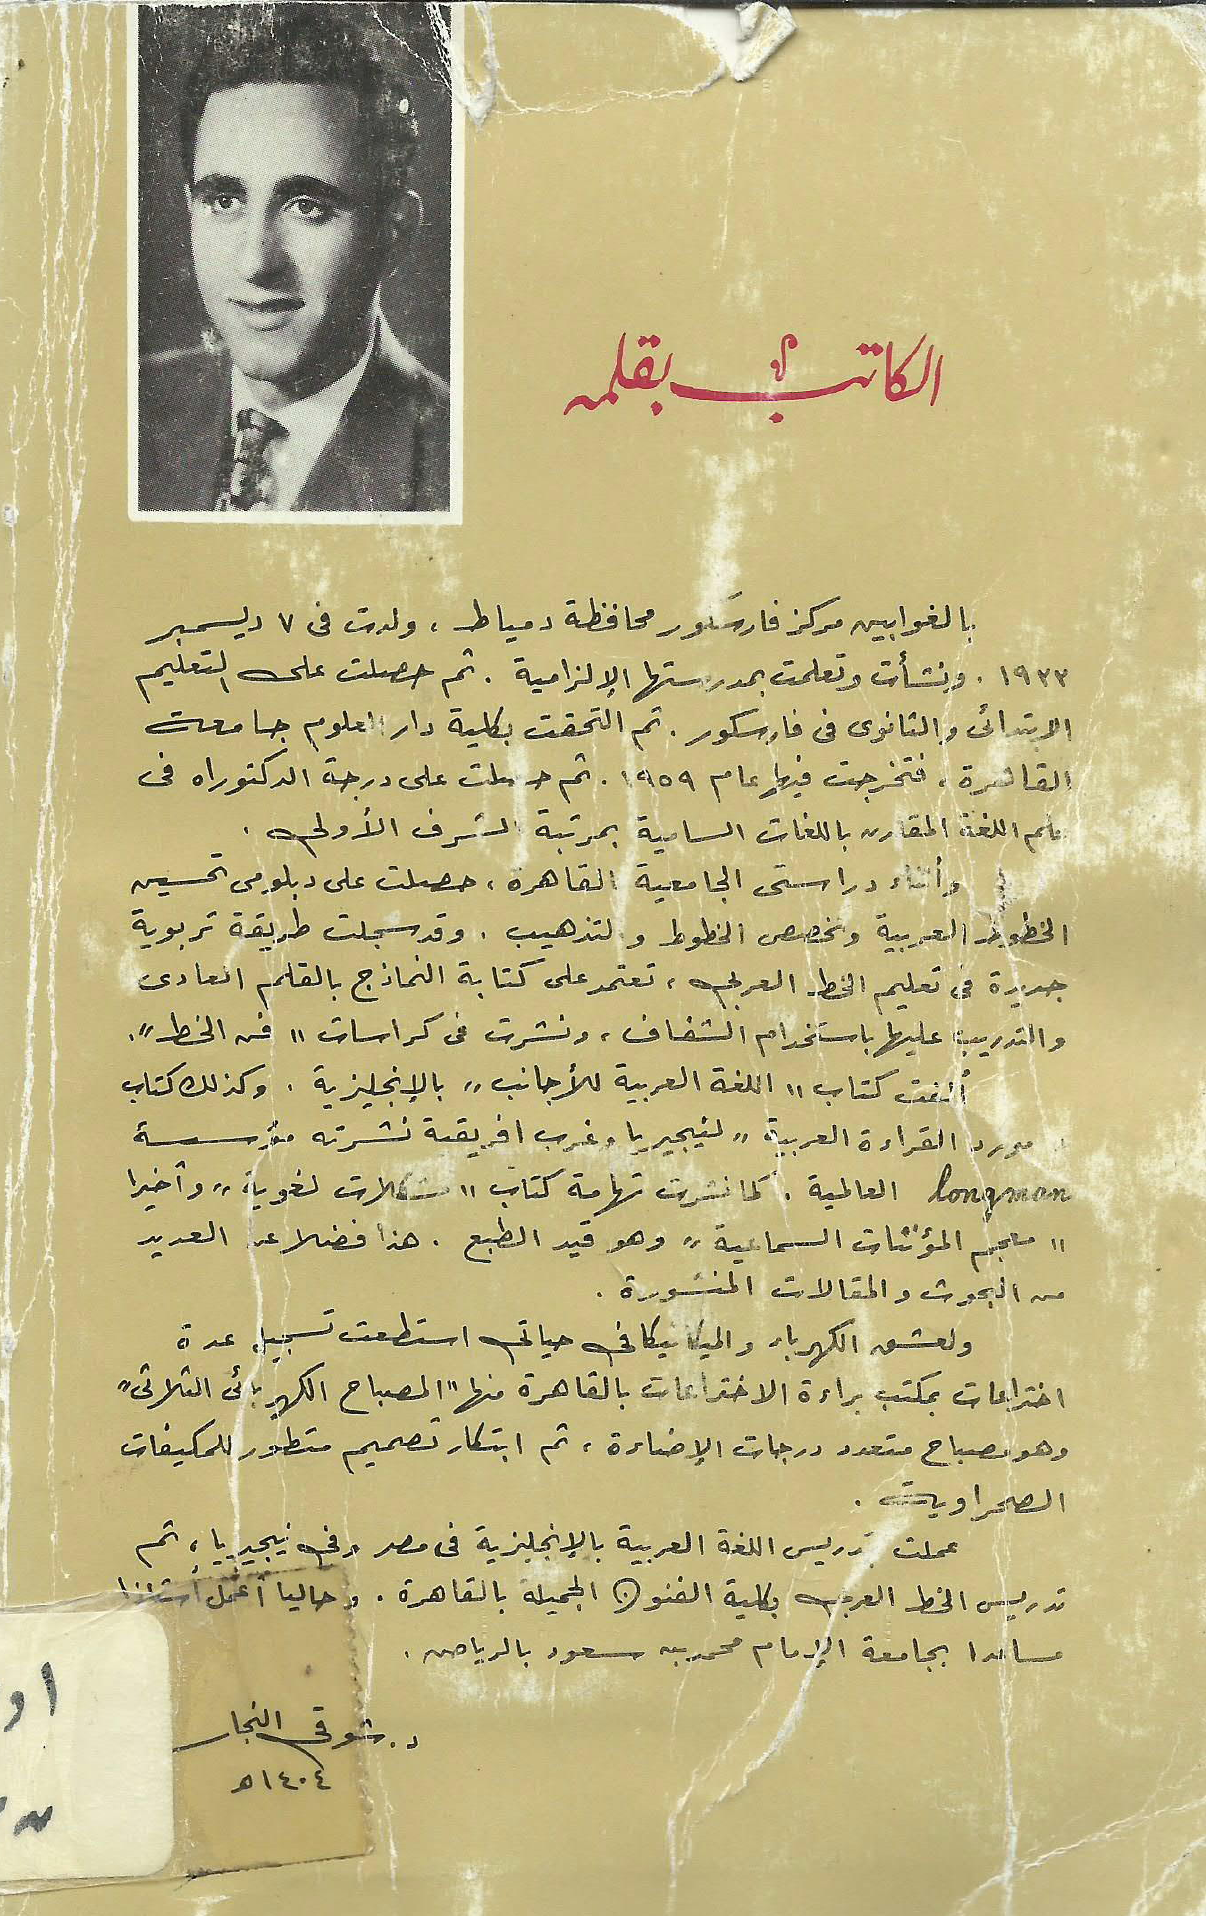 الكاتب بقلمه
بالغوابين مركز فارسكور محافظة دمياط ، ولدت فى ٧ ديسمبر
١٩٣٣ . ونشأت وتعلمت بمدرستها الإلزامية . ثم حصلت على التعليم
الابتدائى والثانوى فى فارسكور . ثم التحقت بكلية دار العلوم جامعة
القاهرة ، فتخرجت فيها عام ١٩٥٩ . ثم حصلت على درجة الدكتوراه فى
علم اللغة المقارن باللغات السامية بمرتبة الشرف الأولى .
وأثناء دراستى الجامعية القاهرة ، حصلت على دبلومى تحسين
الخطوط العربية وتخصص الخطوط والتذهيب . وقد سجلت طريقة تربوية
جديدة فى تعليم الخط العربى ، تعتمد على كتابة النماذج بالقلم العادى
والتدريب عليها باستخدام الشفاف ، ونشرت فى كراسات " فن الخط " .
ألفت كتاب " اللغة العربية للأجانب " بالإنجليزية . وكذلك كتاب
" مورد القراءة العربية " لنيجيريا وغرب افريقية نشرته مؤسسة
longman العالمية . كما نشرت تهامة كتاب " مشكلات لغوية " وأخيرا
" معجم المؤنثات السماعية " وهو قيد الطبع . هذا فضلا عن العديد
من البحوث والمقالات المنشورة .
ولعشق الكهرباء والميكانيكا فى حياتى استطعت تسجيل عدة
اختراعات بمكتب براءة الاختراعات بالقاهرة منها " المصباح الكهربائى الثلاثى "
وهو مصباح متعدد درجات الإضاءة ، ثم ابتكار تصميم متطور للمكيفات
الصحراوية .
عملت بتدريس اللغة العربية بالإنجليزية فى مصر وفى نيجيريا ، ثم
تدريس الخط العربى بكلية الفنون الجميلة بالقاهرة . وحاليا أعمل أستاذا
مساعدا بجامعة الإمام محمد بن سعود بالرياض .
د. شوقى النجار
١٤٠٤ه